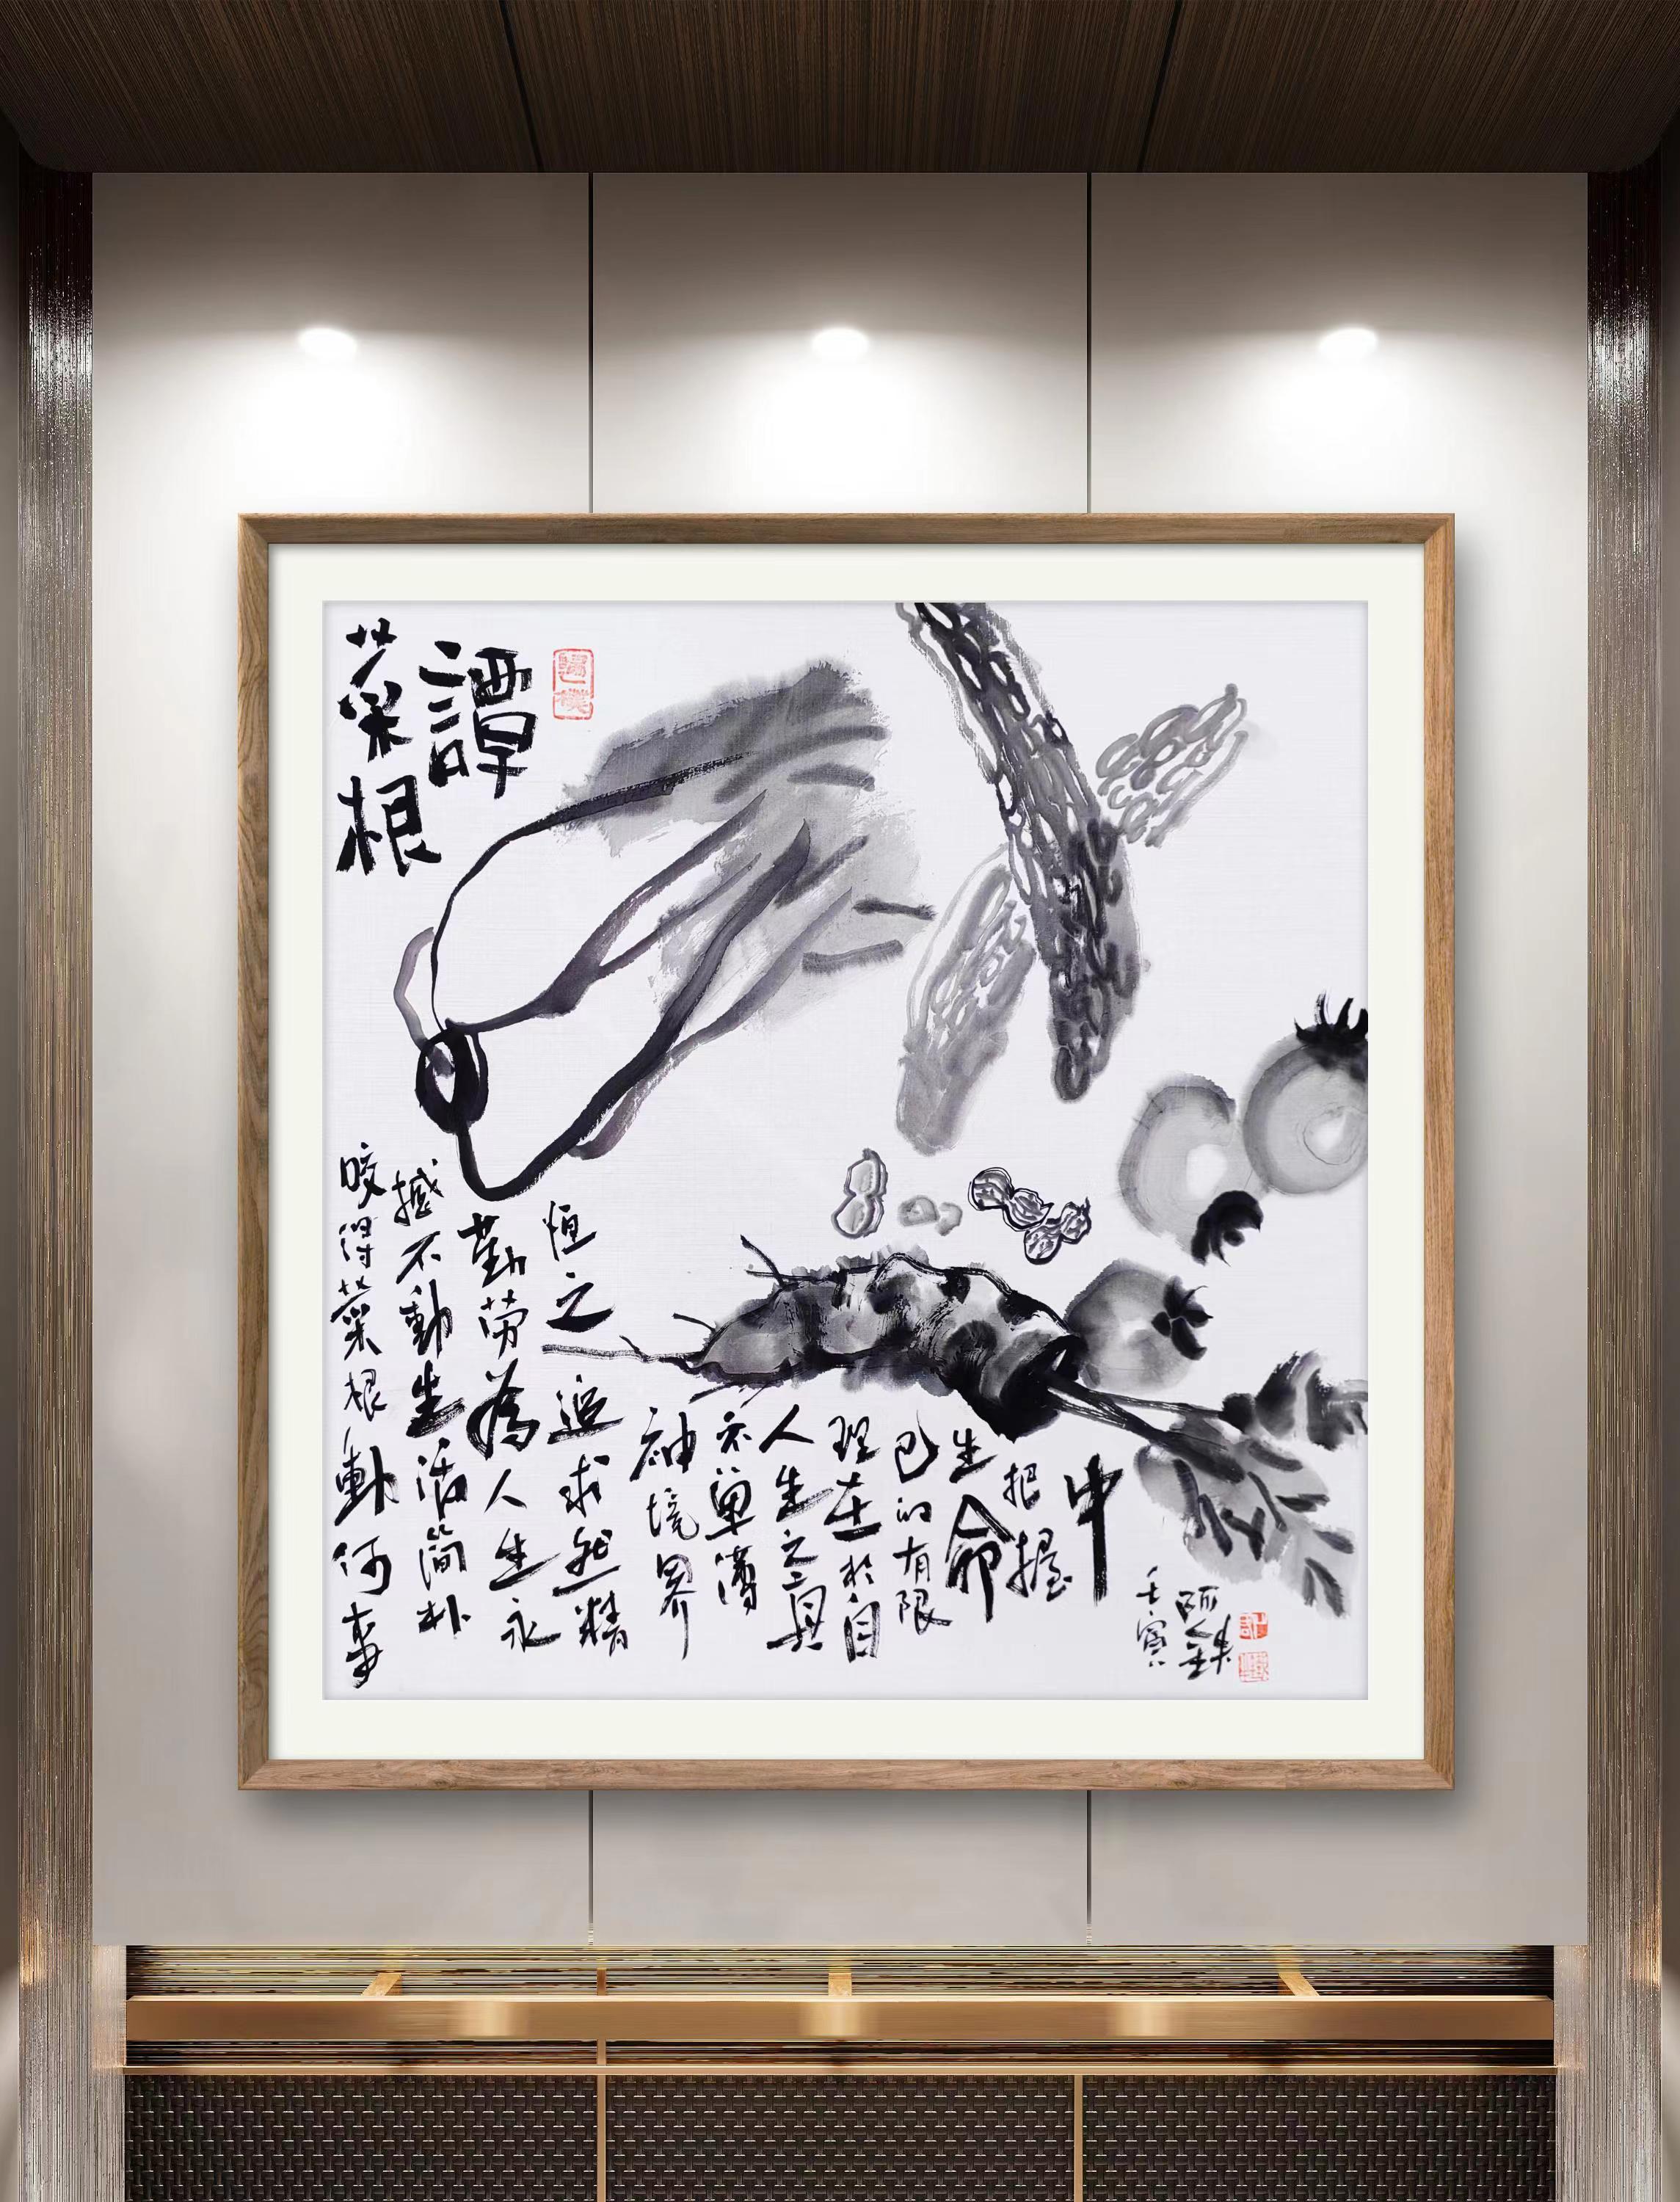 菜根
譚
咬得菜根動何事
撼不動生活簡朴
勤劳為人生永
恒之追求然精
神境界
不單薄
人生之真
理在於自
己的有限
生命
把握
中
壬寅